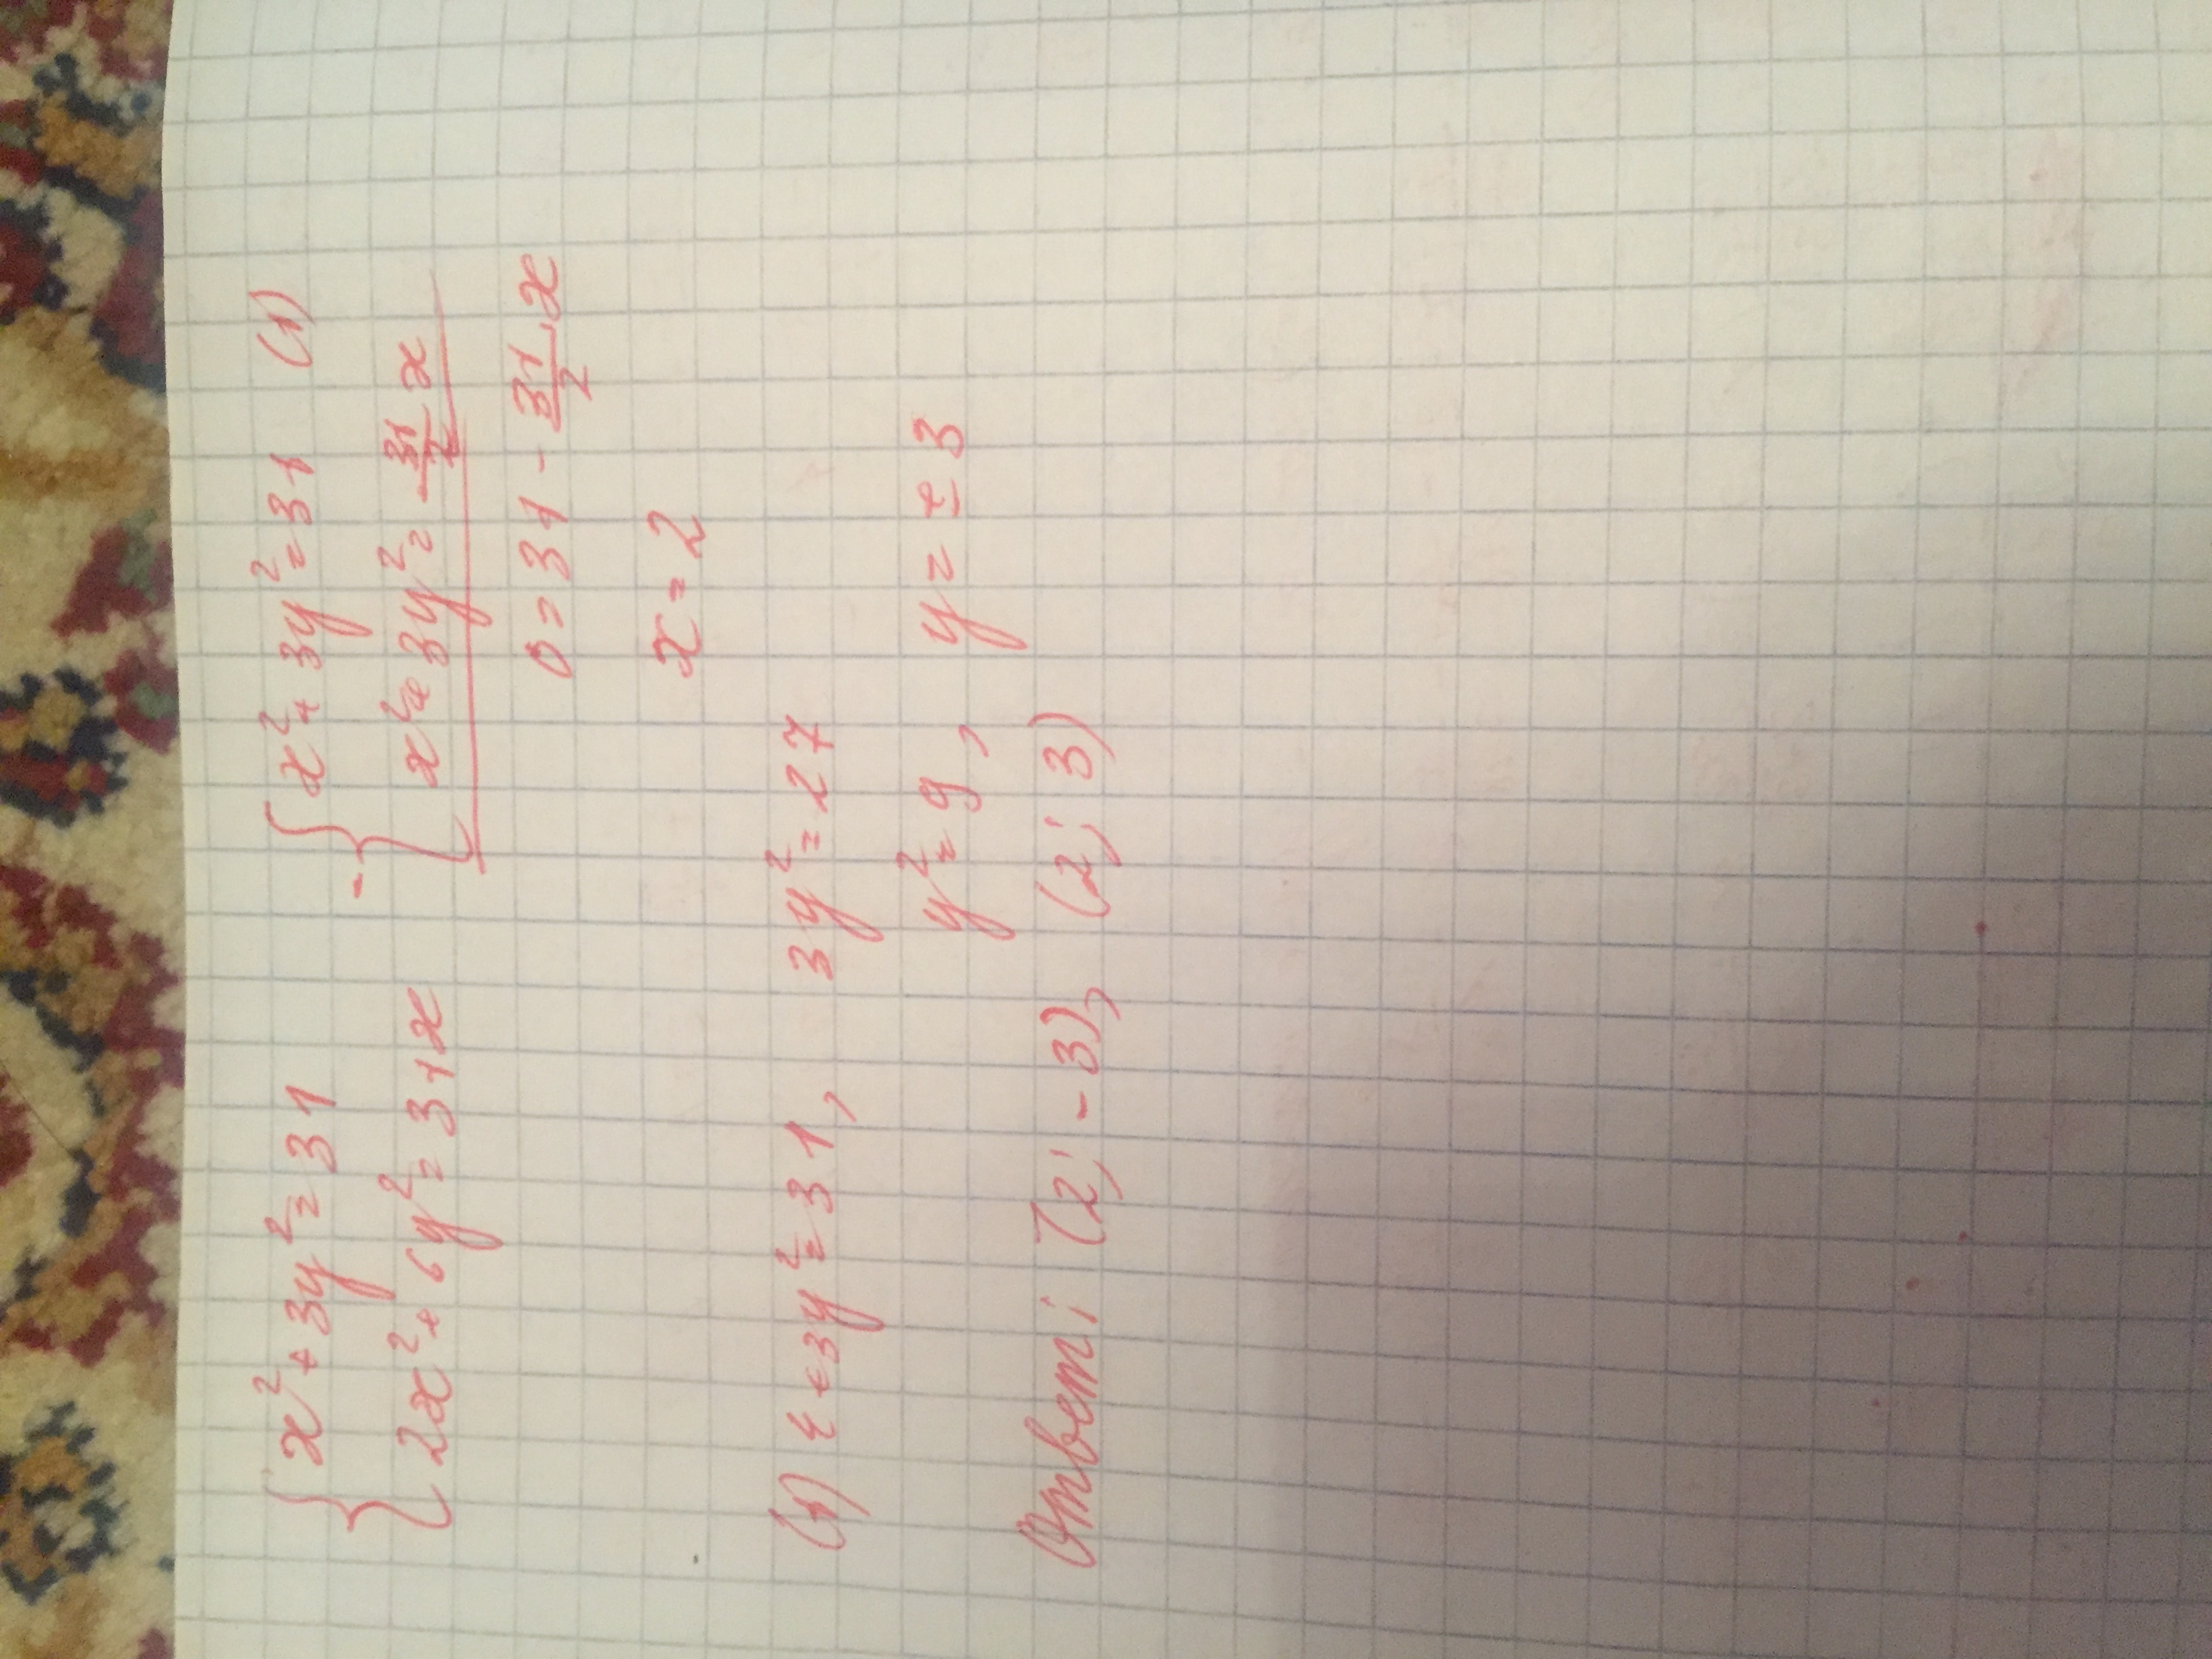 { x² + 3y² = 31    - { x² + 3y² = 31   (1)
{ 2x² + 6y² = 31x    { x² + 3y² = 31/2 x
0 = 31 - 31/2 x
x = 2
(1) 4 + 3y² = 31,   3y² = 27
y² = 9,   y = ± 3
Ответ: (2; -3), (2; 3)